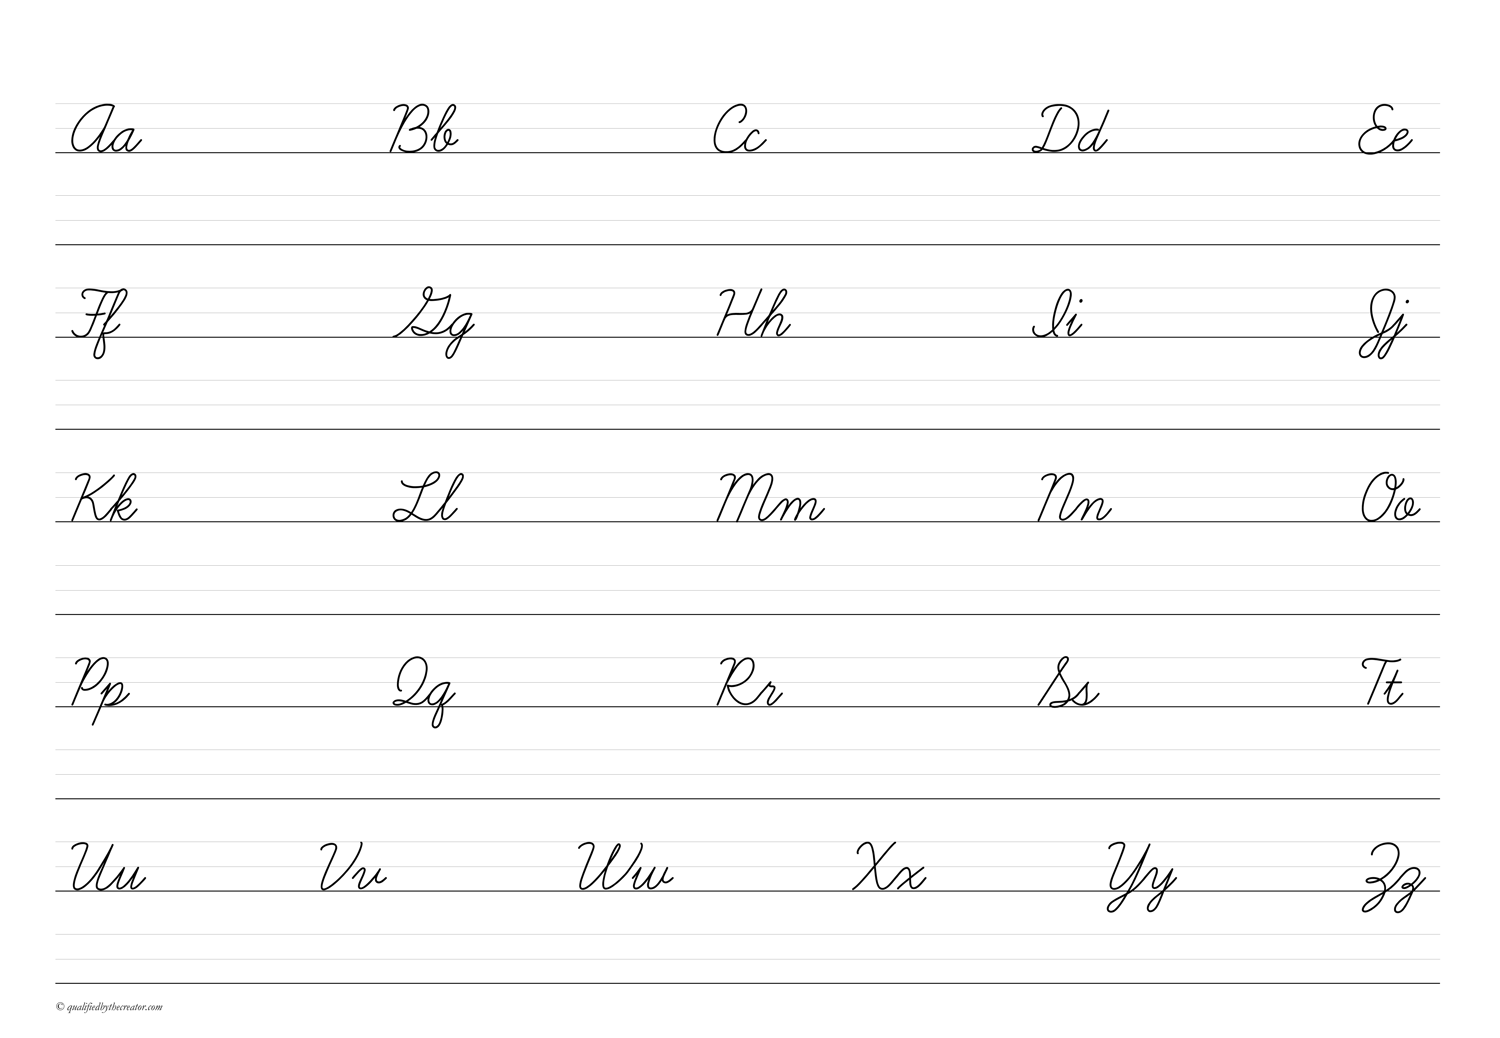 Aa Bb Cc Dd Ee
Ff Gg Hh Ii Jj
Kk Ll Mm Nn Oo
Pp Qq Rr Ss Tt
Uu Vv Ww Xx Yy Zz
© qualifiedbythecreator.com